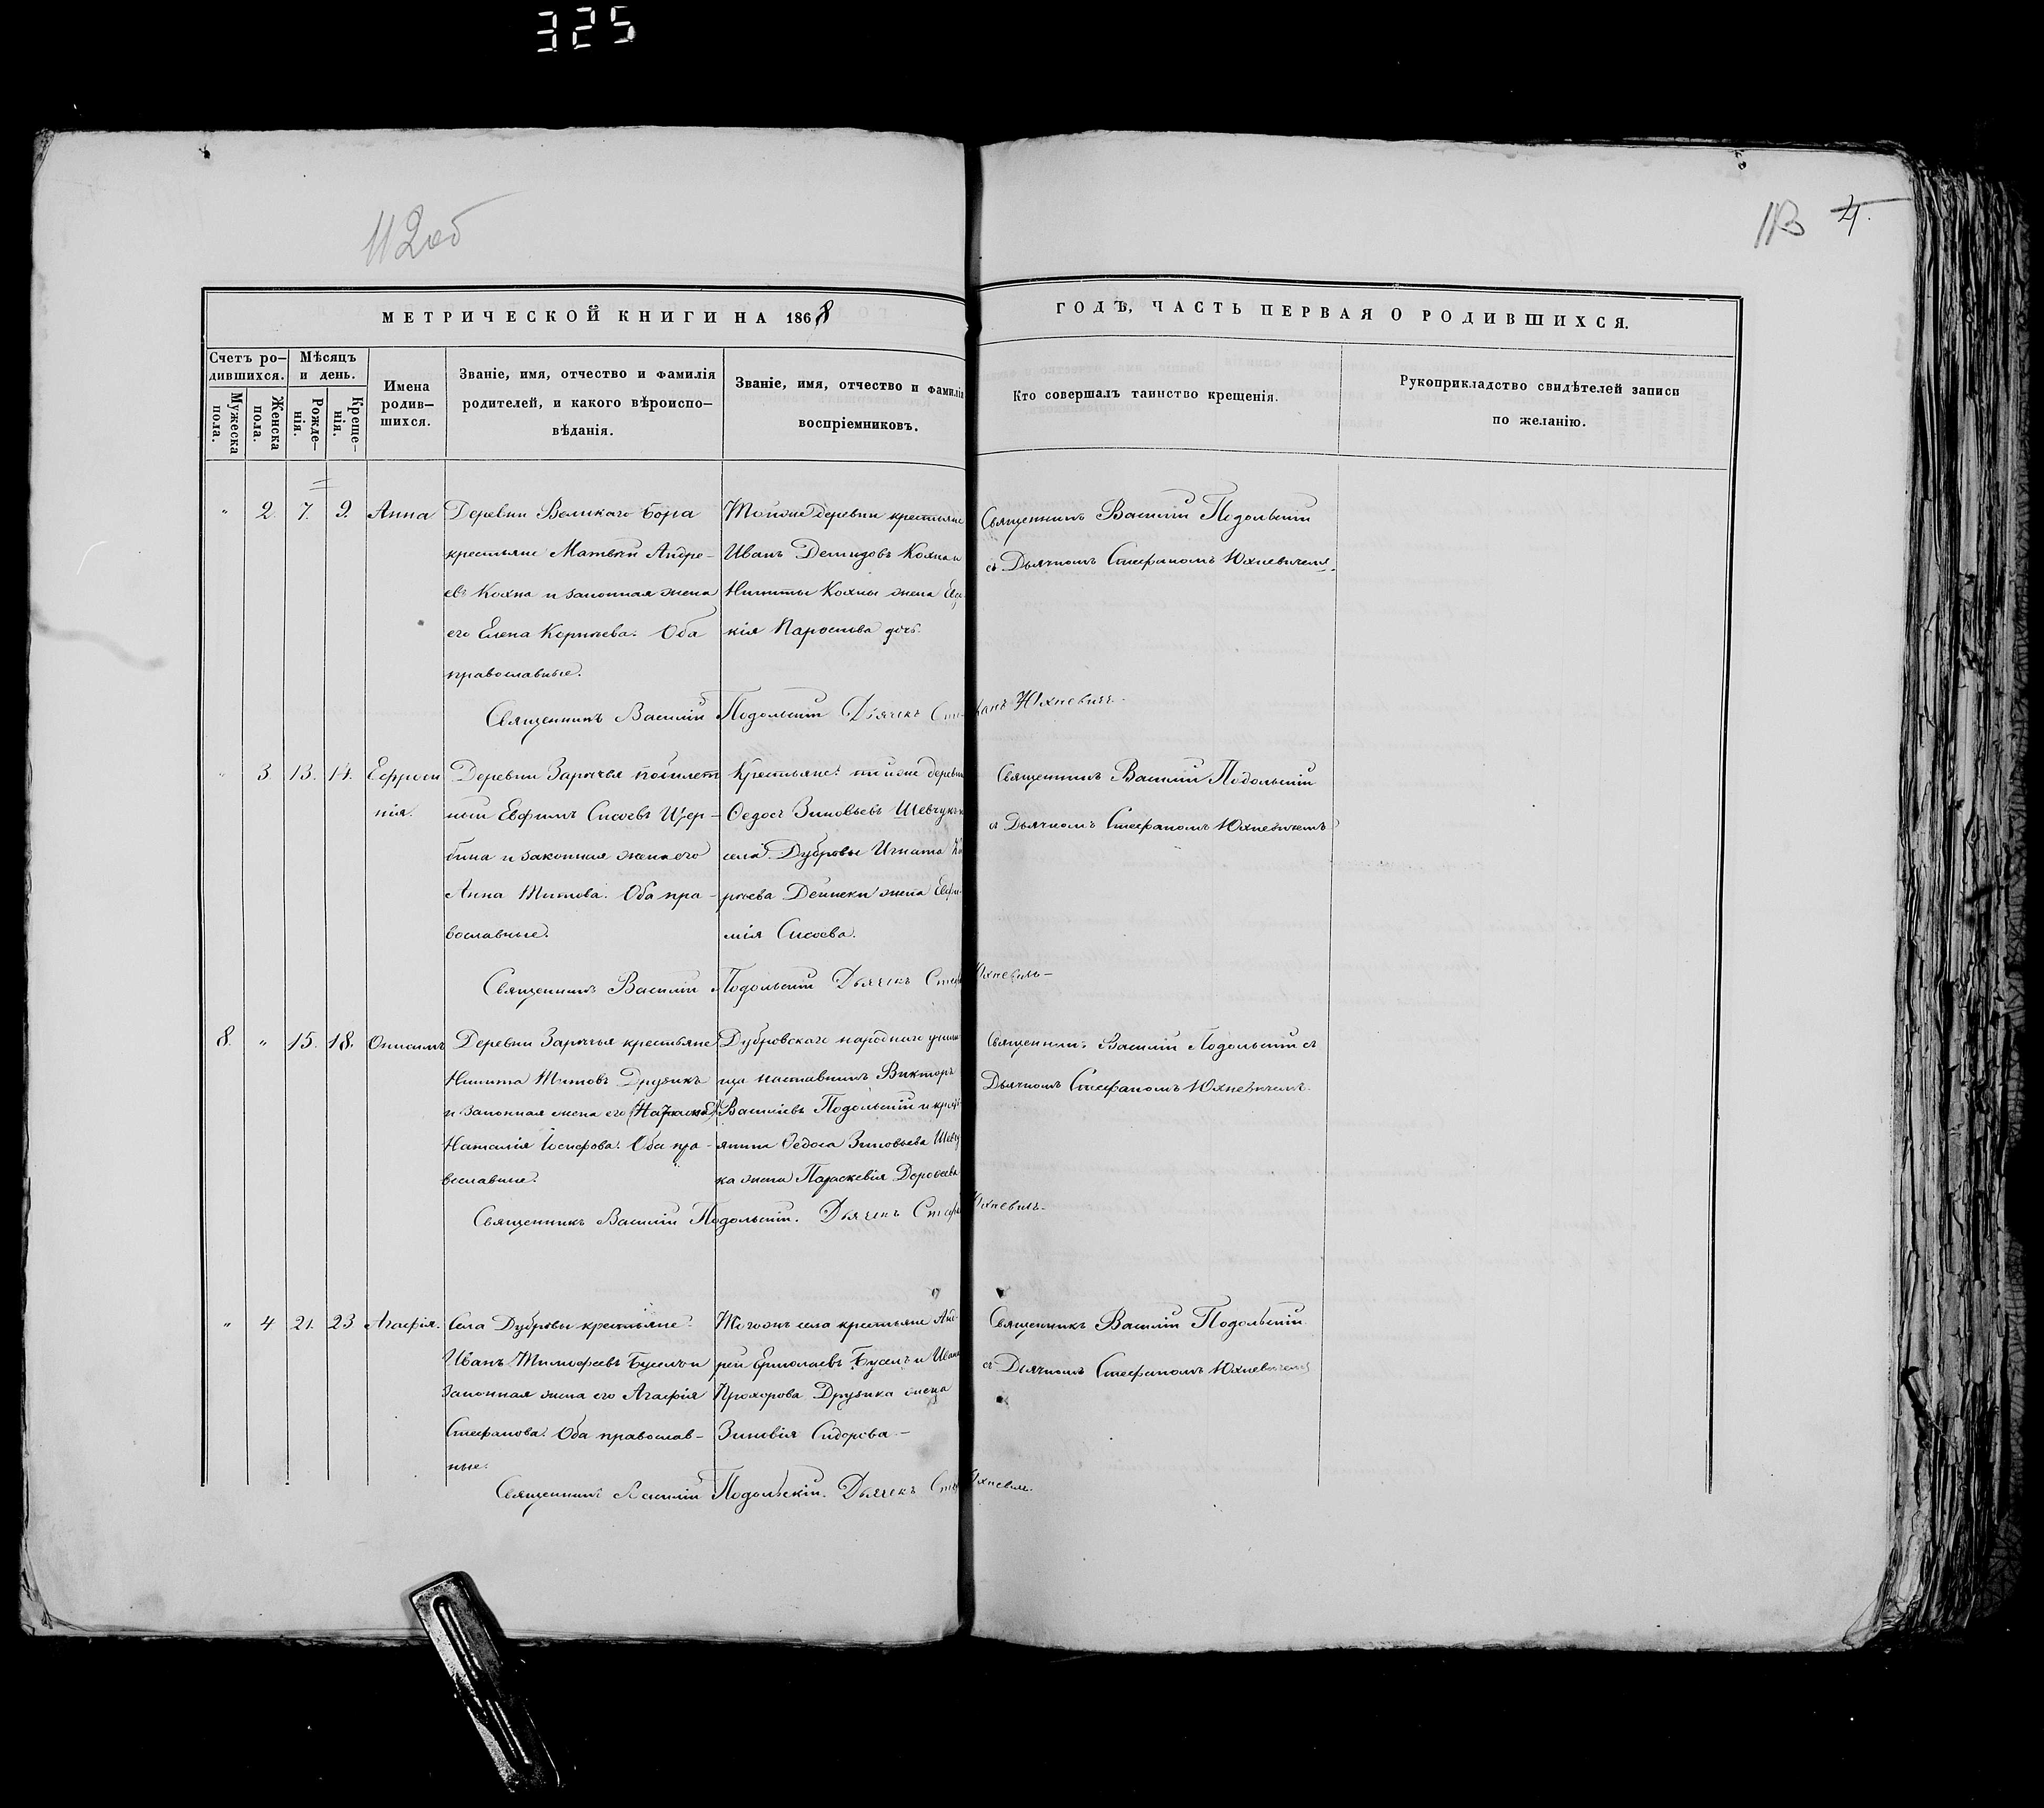 325
112об
113 4.
МЕТРИЧЕСКОЙ КНИГИ НА 1868 ГОДЪ, ЧАСТЬ ПЕРВАЯ О РОДИВШИХСЯ.
Счетъ ро-
дившихся.
Мужеска
пола.
Женска
пола.
Мѣсяцъ
и день.
Рожде-
нія.
Креще-
нія.
Имена
родив-
шихся.
Званіе, имя, отчество и фамилія
родителей, и какого вѣроиспо-
вѣданія.
Званіе, имя, отчество и фамилія
воспріемниковъ.
Кто совершалъ таинство крещенія.
Рукоприкладство свидѣтелей записи
по желанію.
" 2 7. 9. Анна
Деревни Великаго Бора
крестьяне Матвѣй Андре-
евъ Кохна и законная жена
его Елена Корнѣева. Оба
православные.
Тойже деревни крестьяне
Иванъ Демидовъ Кохна и
Никиты Кохны жена Евд
кія дочь.
Священникъ Василій Подольскій
съ Дьячкомъ Стефаномъ Юхневичемъ.
Священникъ Василій Подольскій Дьячекъ Сте Юхневичъ
" 3. 13. 14. Ефроси
нія.
Деревни Зарѣчья
Евфимъ Сисоевъ Щер-
бина и законная жена его
Анна Титова. Оба пра-
вославные.
Крестьяне: тойже деревни
Ѳедосъ Зиновьевъ Шевчукъ и
села Дубровы Игната
Дейнеки жена Евфи-
мія Сисоева.
Священникъ Василій Подольскій
съ Дьячкомъ Стефаномъ Юхневичемъ
Священникъ Василій Подольскій Дьячекъ Стеф Юхневичъ
8. " 15. 18. Онисимъ
Деревни Зарѣчья крестьяне
Никита Титовъ Друзикъ
и законная жена его
Наталія Іосифова. Оба пра-
вославные.
Дубровскаго народнаго учили
ща наставникъ Викторъ
Васильевъ Подольскій и крест
янина Ѳедоса Зиновьева Шевчу
ка жена Параскевія Дороѳеева
Священникъ Василій Подольскій съ
Дьячкомъ Стефаномъ Юхневичемъ.
Священникъ Василій Подольскій. Дьячекъ Стеф Юхневичъ.
" 4 21. 23 Агафія.
Села Дубровы крестьяне:
Иванъ Тимофеевъ Буселъ и
законная жена его Агафія
Стефанова. Оба православ-
ные.
Тогожъ села крестьяне Анд-
рей Ермолаевъ Буселъ и Ивана
Прохорова Друзика жена
Зиновія Сидорова.
Священникъ Василій Подольскій
съ Дьячкомъ Стефаномъ Юхневичемъ
Священникъ Василій Подольскій. Дьячекъ Стеф Юхневичъ.